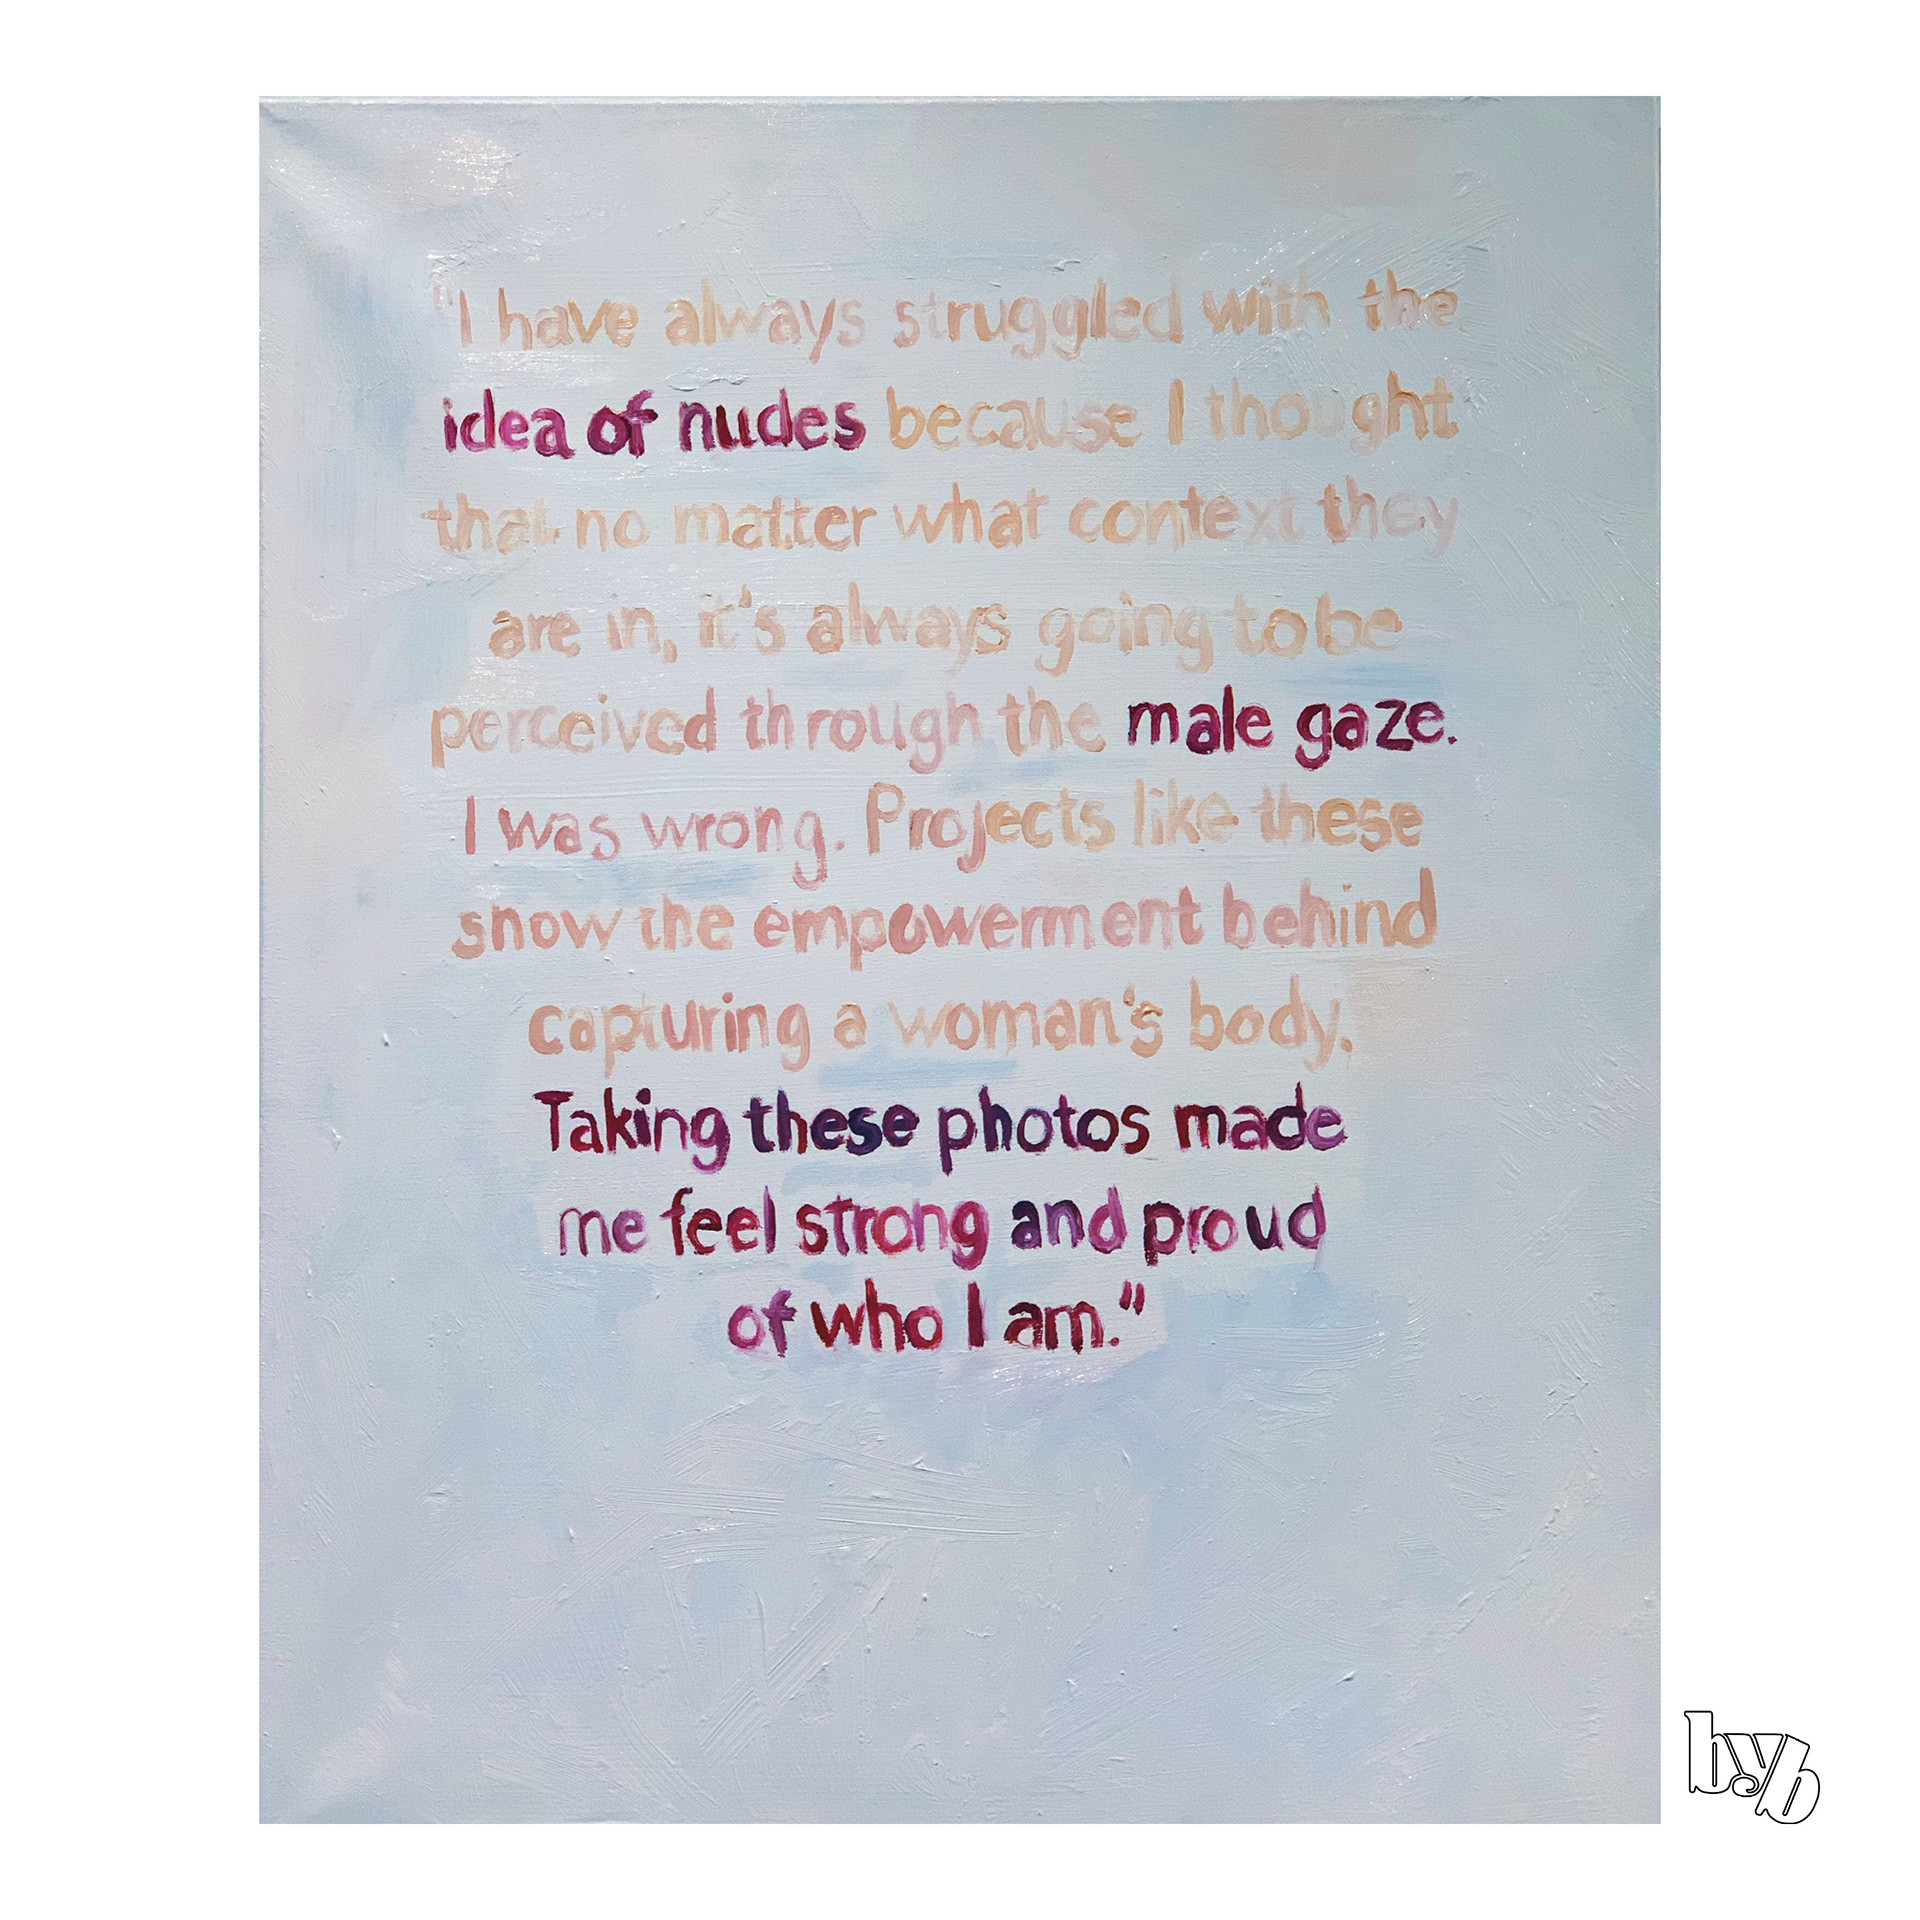 "I have always struggled with the
idea of nudes because I thought
that no matter what context they
are in, it's always going to be
perceived through the male gaze.
I was wrong. Projects like these
show the empowerment behind
capturing a woman's body.
Taking these photos made
me feel strong and proud
of who I am."
byb